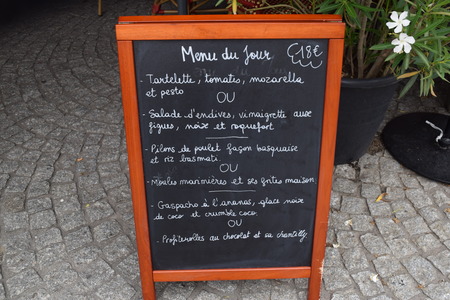 Menu du Jour
18€
- Tartelette, tomates, mozarella
et pesto
OU
- Salade d'endives, vinaigrette aux
figues, noix et roquefort
- Pilons de poulet façon basquaise
et riz basmati.
OU
- Moules marinières et ses frites maison
- Gaspacho à l'ananas, glace noix
de coco et crumble coco.
OU
- Profiterolles au chocolat et sa chantilly